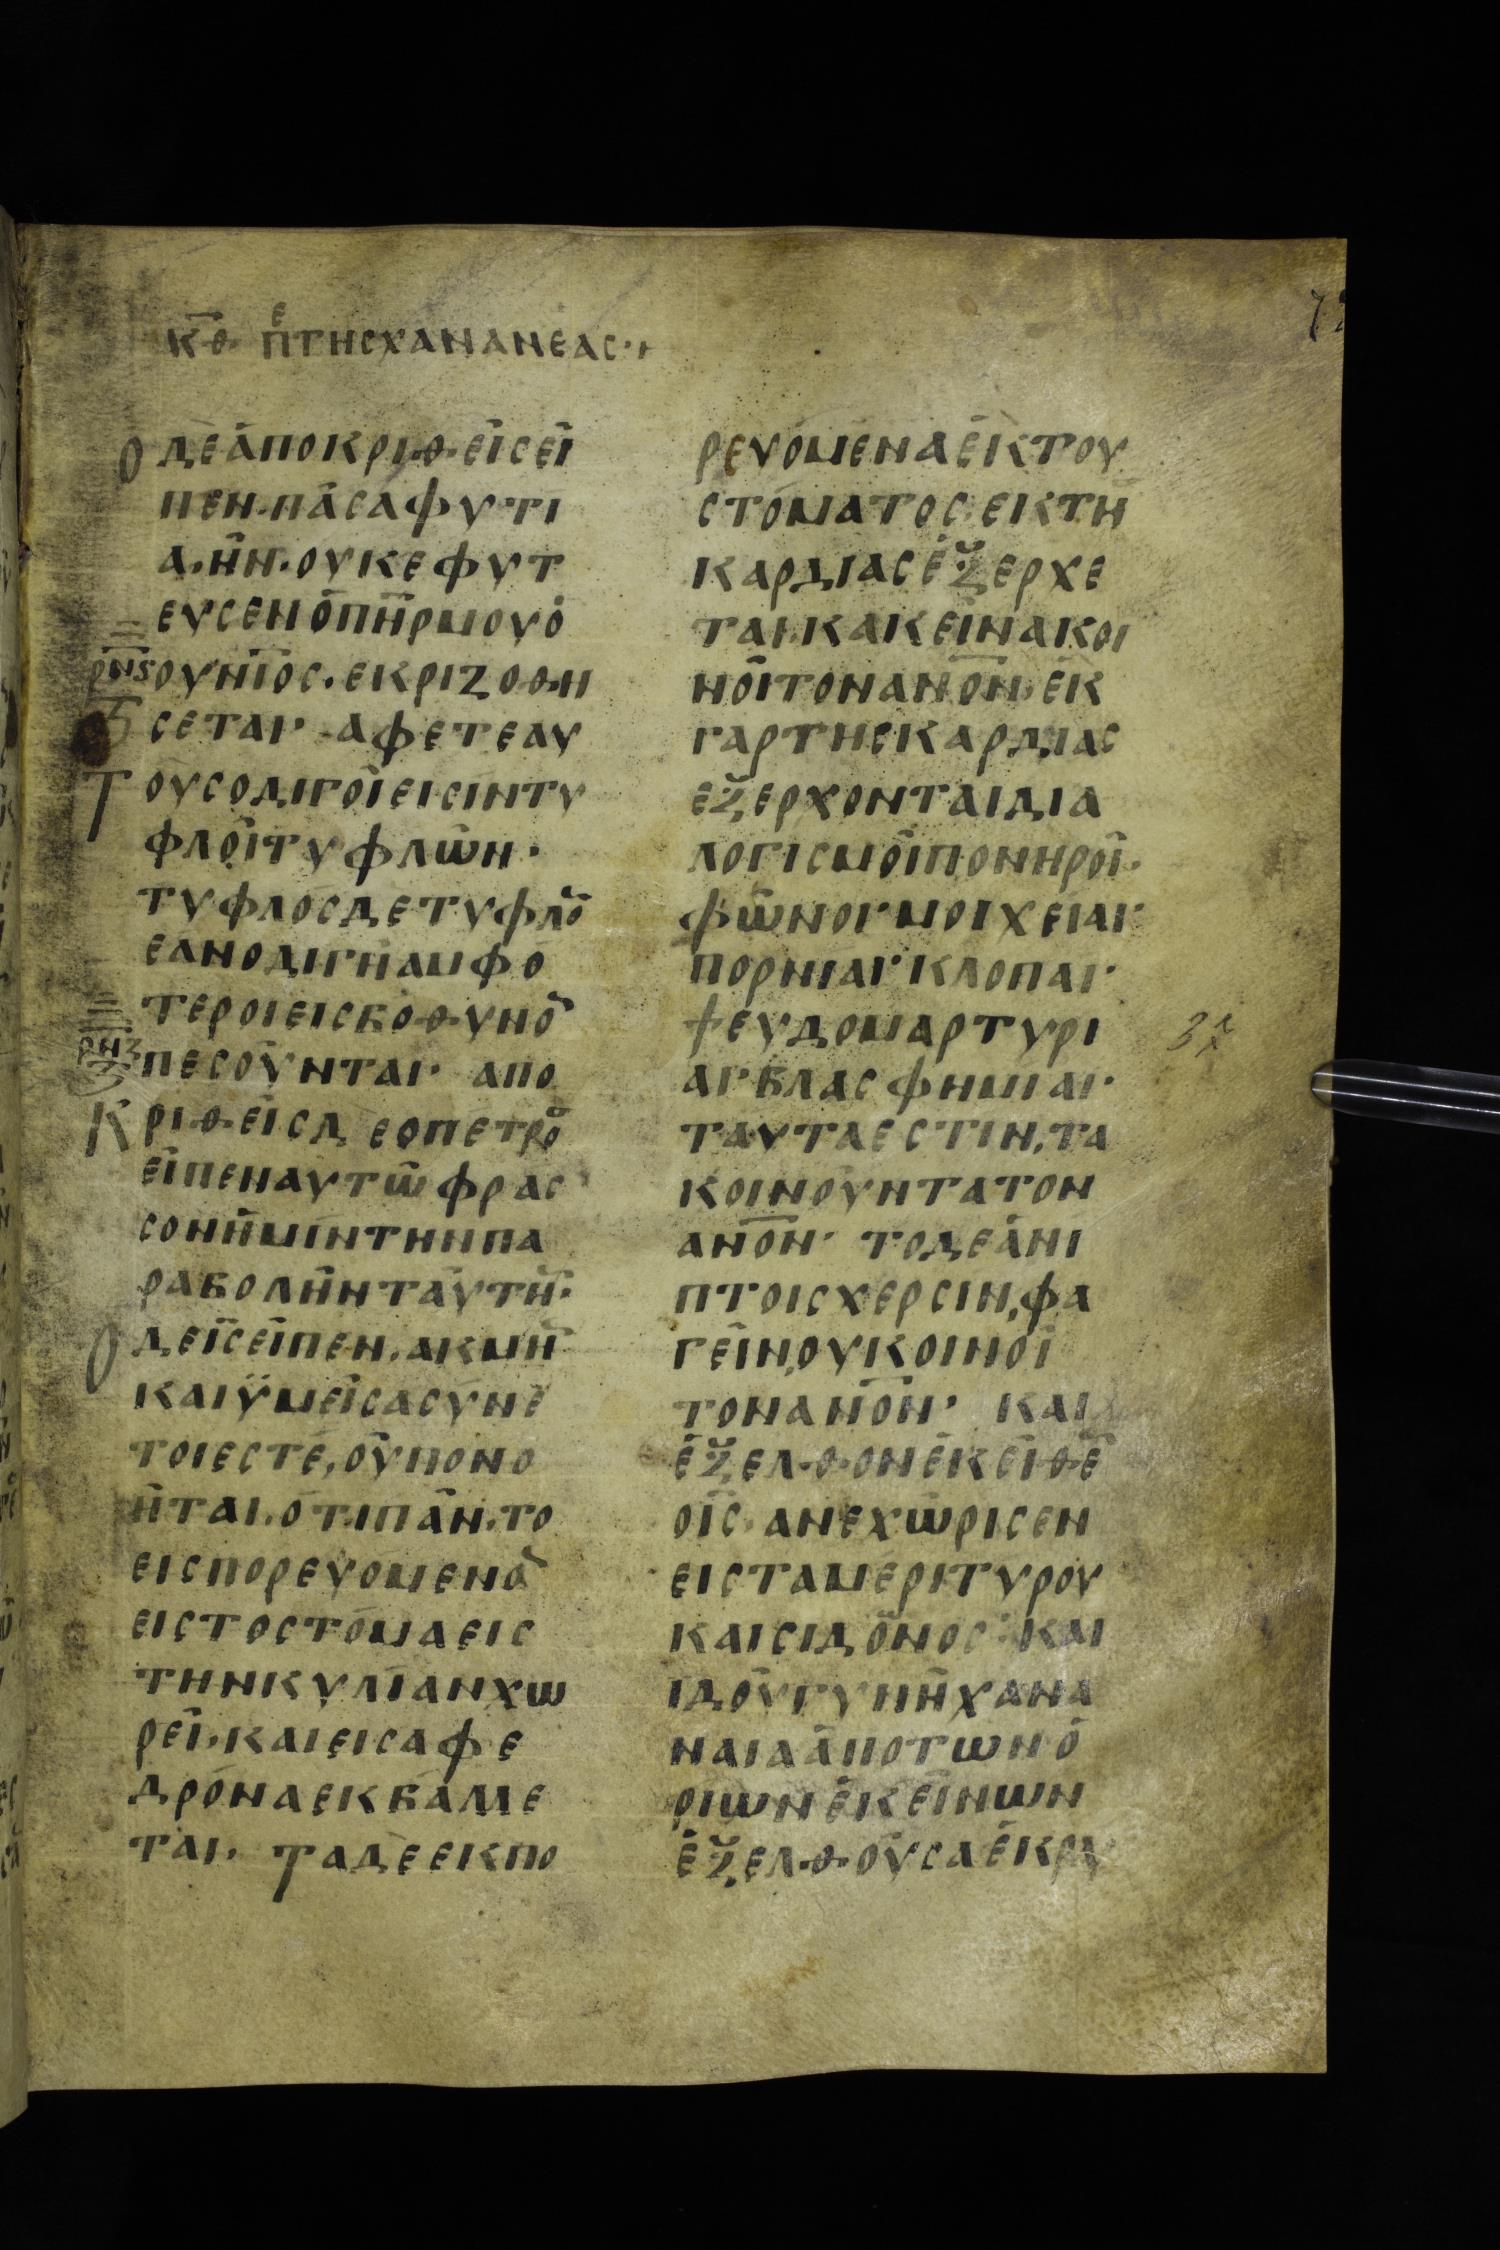 κ̅θ̅ πε τησ χανανεασ
Ο δε ἀποκριθεῖσ εῖ
πεν· πᾶσα φυτι
α· ῆν· ουκ εφυτ
ευσεν ὁ π̅η̅ρ μου ὁ
ρ̅ν̅ϛ̅ ουνῖοσ· εκριζοθη
σεται· αφετε αυ
Τουσ οδιγοῖ εισιν τυ
φλοῖ τυφλῶν·
τυφλοσ δε τυφλο̅
εαν οδιγῆ αμφο
τεροι εισ βοθυνο̅
ρ̅ν̅ζ̅ πεσοῦνται· απο
Κριθεῖσ δε ο πετρο
εῖπεν αυτῶ φρασ
σον ημῖν την πα
ραβολῆν ταύτη̅·
Ο δε ῖ̅σ̅ εῖπεν· ακμη̅
και ϋμεῖσ ασυνε
τοι εστέ, ού πονο
ῆται· ότι πᾶν· το
εισπορευομενο̅
εισ το στόμα εισ
την κυλίαν χω
ρεῖ· και εισ αφε
δρόνα εκβάλλε
ται· Τα δε εκπο
ρευόμενα ἐκ του
στόματοσ· εικ τη̅
καρδιασ ἐξερχε
ται· κακεῖνα κοι
νοῖ τον α̅ν̅ο̅ν̅· ἐκ
γαρ τησ καρδιασ
εξερχονται δια
λογισμοῖ πονηροῖ·
φῶνοι· μοιχειαι·
πορνιαι· κλοπαι·
ψευδομαρτυρι
αι· βλασφημιαι·
ταυτα εστιν, τα
κοινούντα τον
α̅ν̅ο̅ν̅· το δε ἀνι
πτοισ χερσιν, φα
γεῖν, ου κοινοῖ
τον α̅ν̅ο̅ν̅· και
ἐξελθον ἐκεῖθε̅
ο ῖ̅σ̅· ανεχῶρισεν
εισ τα μερι τυρου
και σιδόνοσ· και
ϊδού γυνῆ χανα
ναια ἀπο των ὁ
ριων ἐκεῖνων
ἐξελθούσα ἐκραυ